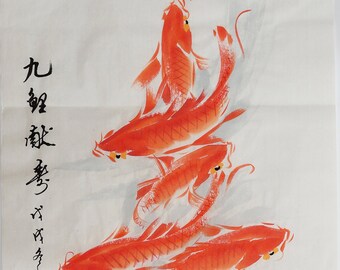 九鲤献寿
戊戌冬